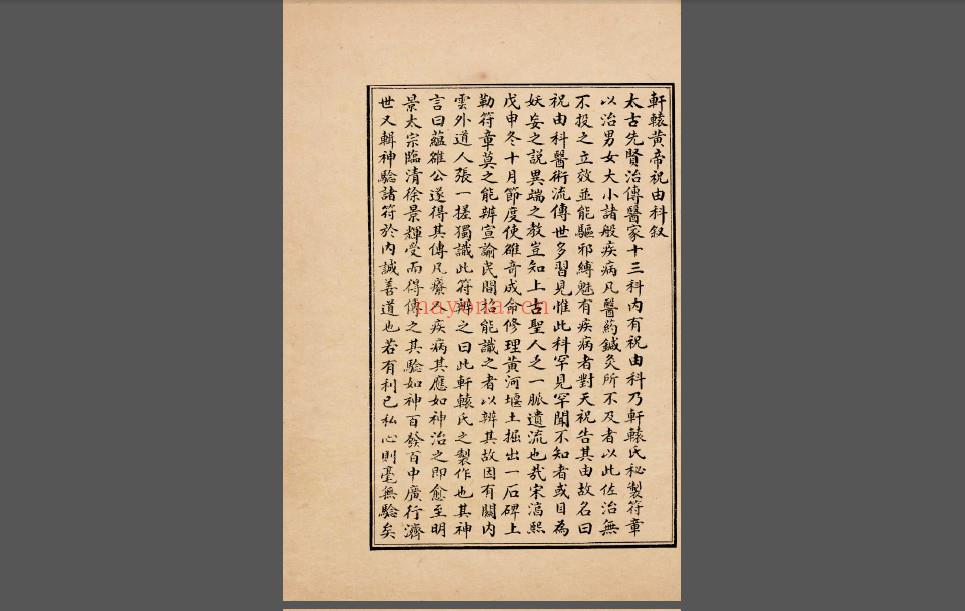 軒轅黃帝祝由科叙
太古先賢治傳醫家十三科內有祝由科乃軒轅氏秘製符章
以治男女大小諸般疾病凡醫藥鍼灸所不及者以此佐治無
不投之立效並能驅邪縛魅有疾病者對天祝告其由故名曰
祝由科醫術流傳世多習見惟此科罕見罕聞不知者或目為
妖妄之説異端之教豈知上古聖人之一脈遺流也哉宋淳熙
戊申冬十月節度使雒奇成命修理黃河堰土掘出一石碑上
勒符章莫之能辨宣諭民間若能識之者以辨其故因有闕內
雲外道人張一槎獨識此符辨之曰此軒轅氏之製作也其神
言曰蘊雒公遂得其傳凡療人疾病其應如神治之即愈至明
景太宗臨清徐景輝受而得傳之其驗如神百發百中廣行濟
世又輯神驗諸符於內誠善道也若有利己私心則毫無驗矣
nayona.cn